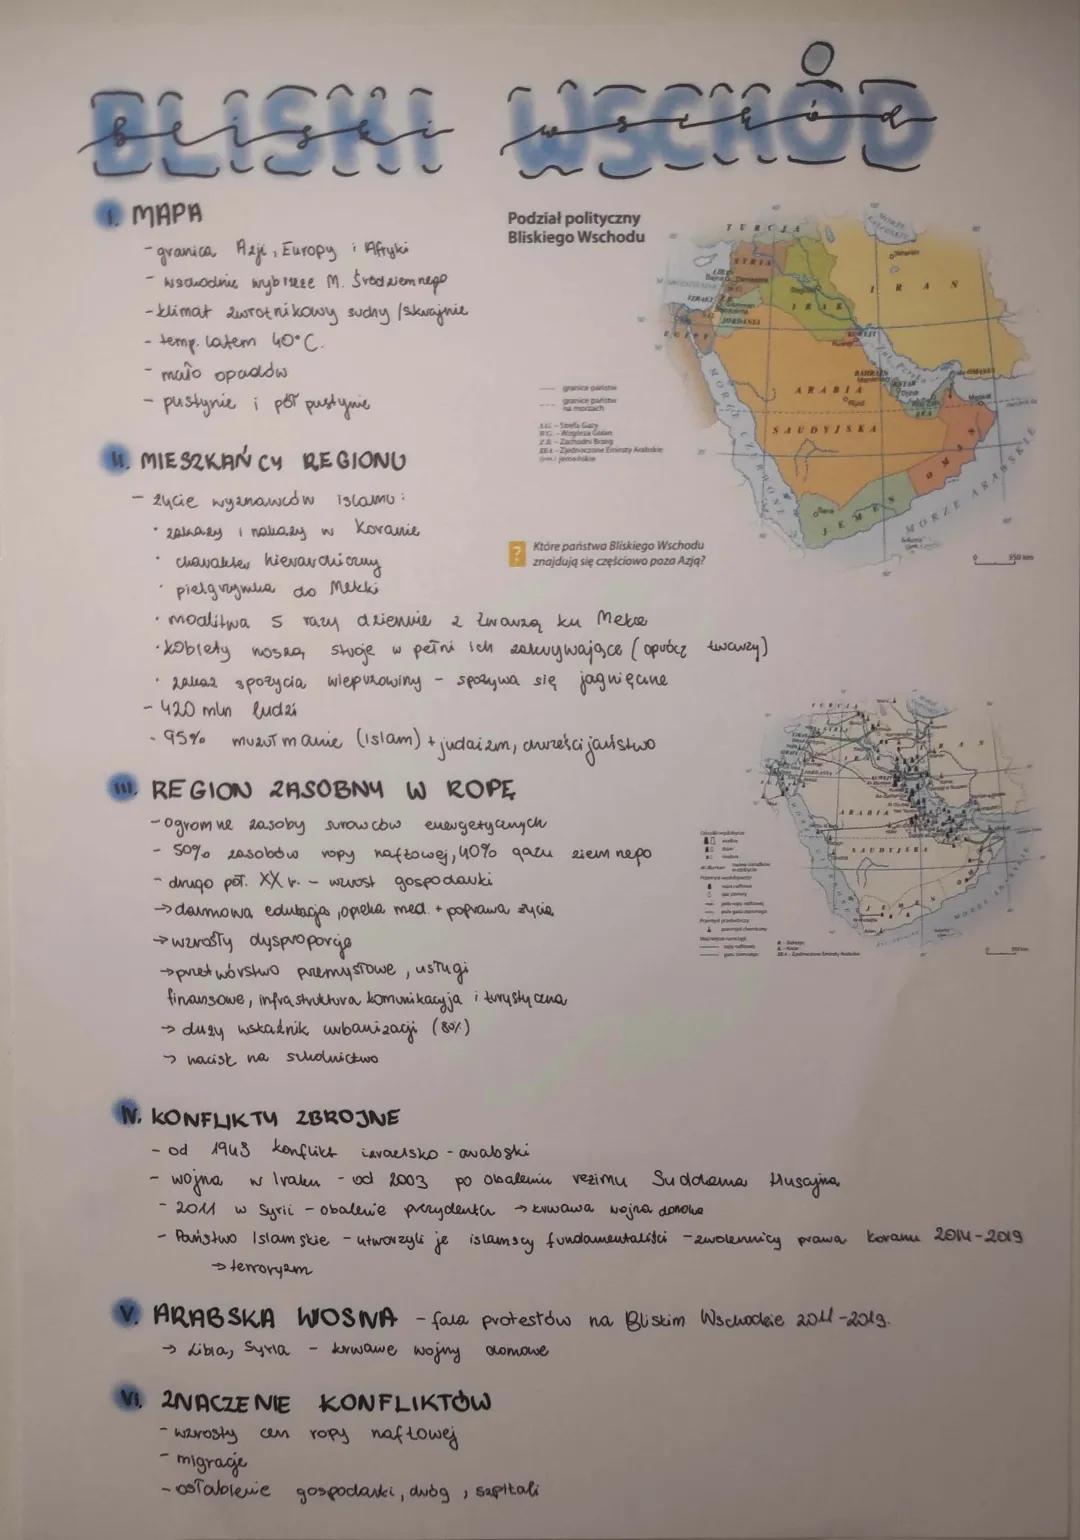 BLISKI WSCHÓD
bliski wschód
I. MAPA
- granica Azji, Europy i Afryki
- wschodnie wybrzeże M. Śródziemnego
- klimat zwrotnikowy suchy /skrajnie
- temp. latem 40°C.
- mało opadów
- pustynie i pół pustynie
Podział polityczny
Bliskiego Wschodu
TURCJA
SYRIA
IRAK
IRAN
IZRAEL
JORDANIA
EGIPT
KUWEJT
BAHRAJN
KATAR
ARABIA
SAUDYJSKA
ZEA
OMAN
JEMEN
MORZE CZERWONE
MORZE ARABSKIE
granice państw
granice państw
na morzach
S.G. - Strefa Gazy
W.G. - Wzgórza Golan
Z.B. - Zachodni Brzeg
ZEA - Zjednoczone Emiraty Arabskie
0 350 km
? Które państwa Bliskiego Wschodu
znajdują się częściowo poza Azją?
II. MIESZKAŃCY REGIONU
- życie wyznawców islamu:
· zakazy i nakazy w Koranie
· charakter hierarchiczny
· pielgrzymka do Mekki
· modlitwa 5 razy dziennie z twarzą ku Mekce
· kobiety noszą stroje w pełni ich zakrywające (oprócz twarzy)
· zakaz spożycia wieprzowiny - spożywa się jagnięcinę
- 420 mln ludzi
- 95% muzułmanie (islam) + judaizm, chrześcijaństwo
III. REGION ZASOBNY W ROPĘ
- ogromne zasoby surowców energetycznych
- 50% zasobów ropy naftowej, 40% gazu ziemnego
- drugo poł. XX w. - wzrost gospodarki
→ darmowa edukacja, opieka med. + poprawa życia
→ wzrosły dysproporcje
→ przetwórstwo przemysłowe, usługi
finansowe, infrastruktura komunikacyja i turystyczna
→ duży wskaźnik urbanizacji (80%)
→ nacisk na szkolnictwo
TURCJA
IRAN
ARABIA
SAUDYJSKA
JEMEN
OMAN
MORZE ARABSKIE
ropa naftowa
gaz ziemny
przemysł chemiczny
ZEA - Zjednoczone Emiraty Arabskie
IV. KONFLIKTY ZBROJNE
- od 1943 konflikt izraelsko - arabski
- wojna w Iraku - od 2003 po obaleniu reżimu Suddama Husajna
- 2011 w Syrii - obalenie prezydenta → krwawa wojna domowa
- Państwo Islamskie - utworzyli je islamscy fundamentaliści - zwolennicy prawa Koranu 2014-2019
→ terroryzm
V. ARABSKA WOSNA - fala protestów na Bliskim Wschodzie 2011-2019.
→ Libia, Syria - krwawe wojny domowe
VI. ZNACZENIE KONFLIKTÓW
- wzrosty cen ropy naftowej
- migracje
- osłabienie gospodarki, dróg, szpitali